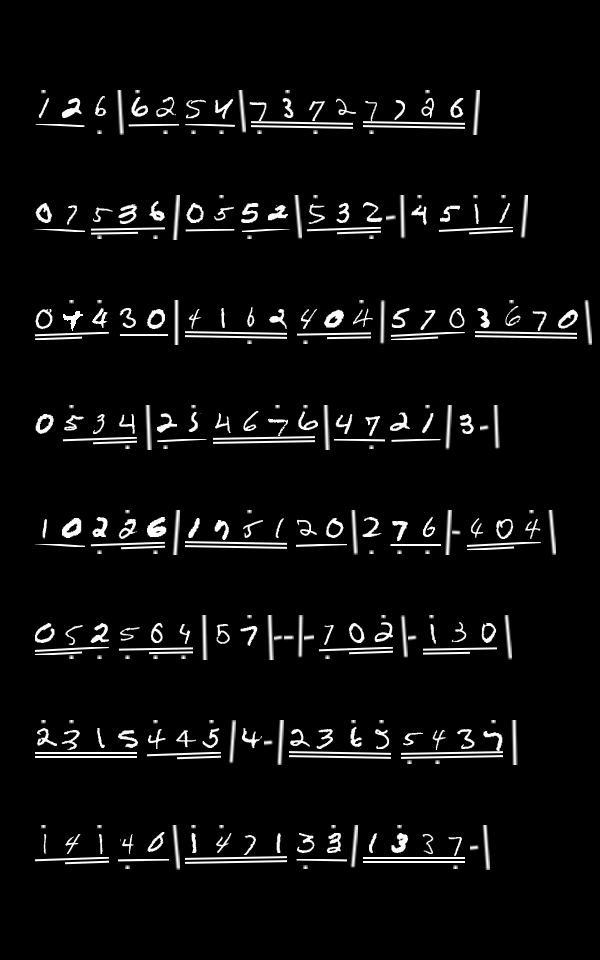 1 2 6 | 6 2 5 4 | 7 3 7 2 7 7 2 6 |
0 7 5 3 6 | 0 5 5 2 | 5 3 2 - | 4 5 1 1 |
0 4 4 3 0 | 4 1 6 2 4 0 4 | 5 7 0 3 6 7 0 |
0 5 3 4 | 2 3 4 6 7 6 | 4 7 2 1 | 3 - |
1 0 2 2 6 | 1 7 5 1 2 0 | 2 7 6 | - 4 0 4 |
0 5 2 5 6 4 | 5 7 | - - | - 7 0 2 | - 1 3 0 |
2 3 1 5 4 4 5 | 4 - | 2 3 6 5 5 4 3 7 |
1 4 1 4 0 | 1 4 7 1 3 3 | 1 3 3 7 - |